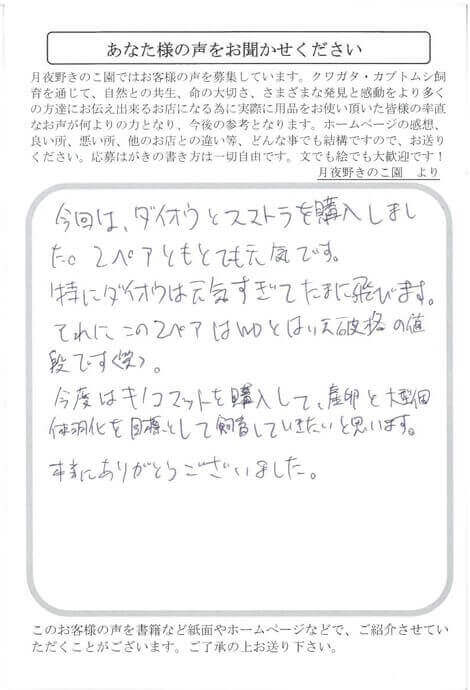 あなた様の声をお聞かせください
月夜野きのこ園ではお客様の声を募集しています。クワガタ・カブトムシ飼
育を通じて、自然との共生、命の大切さ、さまざまな発見と感動をより多く
の方達にお伝え出来るお店になる為に実際に用品をお使い頂いた皆様の率直
なお声が何よりの力となり、今後の参考となります。ホームページの感想、
良い所、悪い所、他のお店との違い等、どんな事でも結構ですので、お送り
ください。応募はがきの書き方は一切自由です。文でも絵でも大歓迎です！
月夜野きのこ園　より
今回は、ダイオウとスマトラを購入しまし
た。2ペアともとても元気です。
特にダイオウは元気すぎてたまに飛びます。
それに この2ペアはWDとはいえ破格の値
段です(笑)。
今度はキノコマットを購入して、産卵と大型個
体羽化を目標として飼育していきたいと思います。
本当にありがとうございました。
このお客様の声を書籍など紙面やホームページなどで、ご紹介させてい
ただくことがございます。ご了承の上お送り下さい。